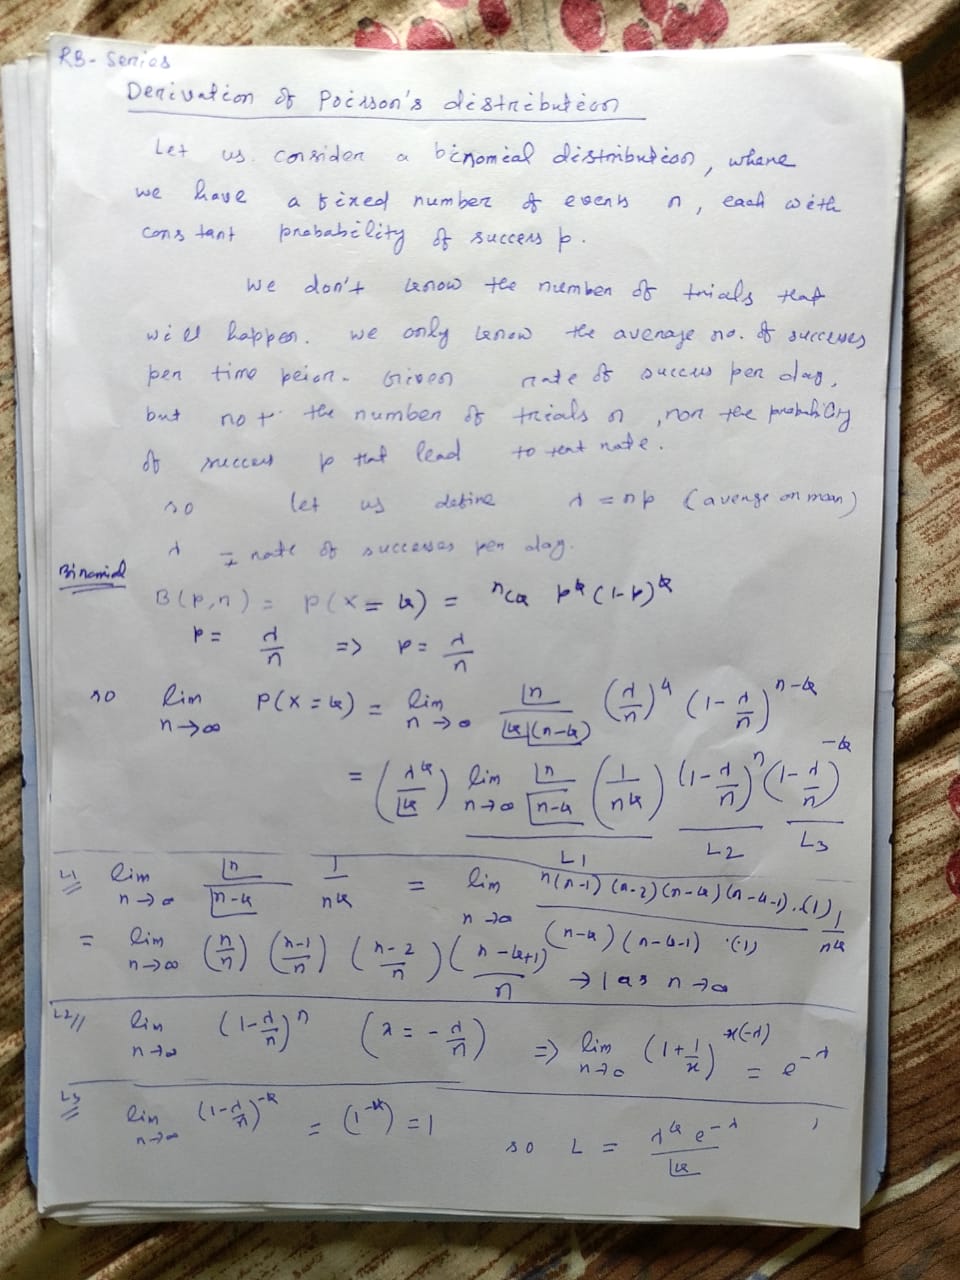 RB- Series
Derivation of Poisson's distribution
Let us consider a binomial distribution, where
we have a fixed number of events n, each with
constant probability of success p.
We don't know the number of trials that
will happen. we only know the average no. of successes
per time peior. Given rate of success per day,
but not the number of trials n, nor the probability
of success p that lead to that rate.
so let us define λ = np (average or mean)
λ = rate of successes per day.
Binomial
B(p,n) = P(X = k) = ⁿCk pᵏ (1-p)ᵏ
p = λ/n => p = λ/n
so lim n→∞ P(X = k) = lim n→∞ |n / |k |(n-k) (λ/n)ᵏ (1 - λ/n)ⁿ⁻ᵏ
= (λᵏ / |k) lim n→∞ |n / |n-k (1/nᵏ) (1 - λ/n)ⁿ (1 - λ/n)⁻ᵏ
L1 L2 L3
L1 lim n→∞ |n / |n-k 1/nᵏ = lim n→∞ n(n-1)(n-2)(n-k)(n-k-1)..(1) / (n-k)(n-k-1)..(1) 1/nᵏ
= lim n→∞ (n/n) (n-1/n) (n-2/n) (n-k+1/n) → 1 as n→∞
L2// lim n→∞ (1 - λ/n)ⁿ (x = -λ/n) => lim n→∞ (1 + 1/x)^x(-λ) = e^-λ
L3 lim n→∞ (1 - λ/n)⁻ᵏ = (1⁻ᵏ) = 1 so L = λᵏ e^-λ / |k